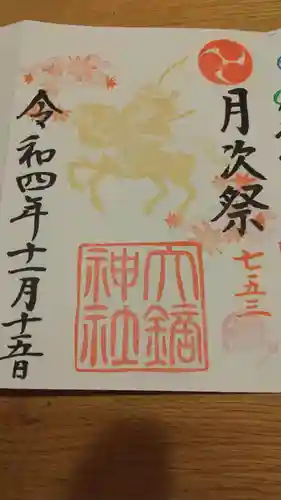 月次祭
七五三
六鏑
神社
令和四年十一月十五日